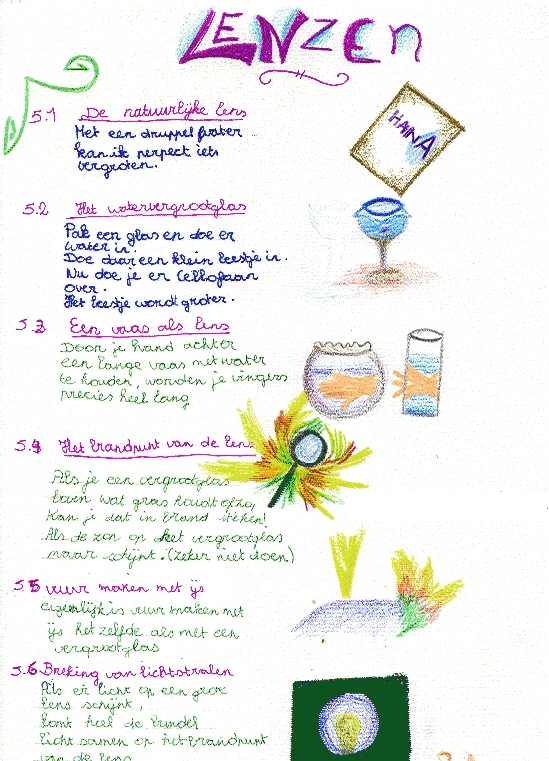 LENZEN
5.1 De natuurlijke lens
Met een druppel water
kan ik perfect iets
vergroten.
HANA
5.2 Het watervergrootglas
Pak een glas en doe er
water in.
Doe daar een klein beestje in.
Nu doe je er cellofaan
over.
Het beestje wordt groter.
5.3 Een vaas als lens
Door je hand achter
een lange vaas met water
te houden, worden je vingers
precies heel lang
5.4 Het brandpunt van de lens
Als je een vergrootglas
boven wat gras houdt ofzo,
kan je dat in brand steken!
Als de zon op het vergrootglas
maar schijnt. (zeker niet doen)
5.5 vuur maken met ijs
eigenlijk is vuur maken met
ijs hetzelfde als met een
vergrootglas
5.6 Breking van lichtstralen
Als er licht op een grote
lens schijnt,
komt heel de bundel
licht samen op het brandpunt
van de lens